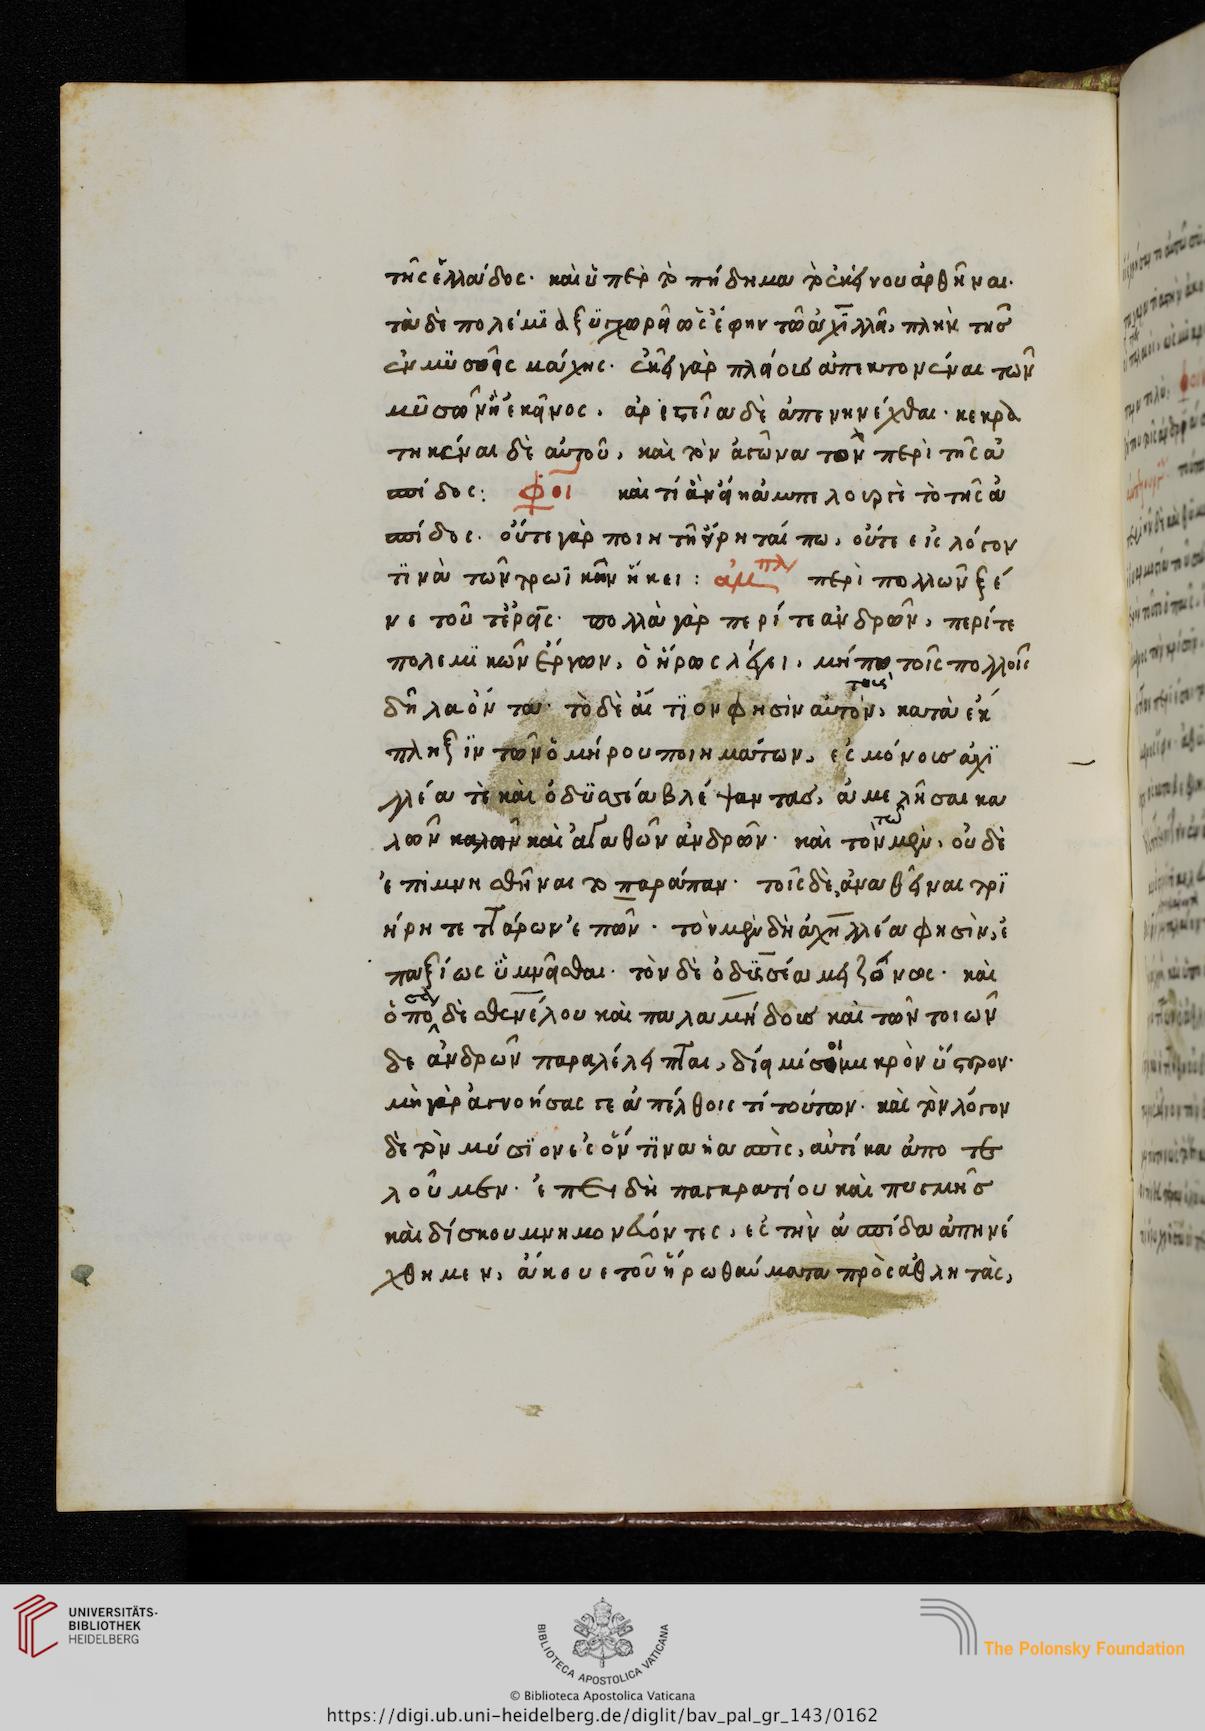 τῆς ἑλλάδος· καὶ ὑπὲρ τὸ πήδημα τὸ ἐκείνου ἀρθῆναι·
τὰ δὲ πολέμϊα ξϋγχωρεῖ ὡς ἔφην τῶ ἀχϊλλεῖ, πλὴν τῆσ
ἐν μϋσοῖς μάχης· ἐκεῖ γὰρ πλείουσ ἀπεκτονέναι τῶν
μυσῶν ἢ ἐκεῖνος, ἀριστεῖα δὲ ἀπενηνέχθαι· κεκρα
τηκέναι δὲ αὐτοῦ, καὶ τὸν ἀγῶνα τὸν περὶ τῆς ἀ
σπίδος: φοι καὶ τί ἂν εἴη ἀμπελουργὲ τὸ τῆς ἀ
σπίδος· οὔτε γὰρ ποιητῆ εἴρηταί πω, οὔτε εἰς λόγον
τϊνὰ τῶν τρωϊκῶν ἥκει: ἀμπλ περὶ πολλῶν ξέ
νε τοῦτ' ἐρεῖς· πολλὰ γὰρ περί τε ἀνδρῶν, περί τε
πολεμϊκῶν ἔργων, ὁ ἥρως λέγει, μήπω τοῖς πολλοῖς
δῆλα ὄντα· τὸ δὲ αἴτϊον φησὶν αὐτὸν, κατὰ ἔκ
πληξϊν τῶν ὁμήρου ποιημάτων, ἐς μόνουσ ἀχϊ
λλέα τὲ καὶ ὀδϋσσέα βλέψαντασ, ἀμελῆσαι κα
λῶν καὶ ἀγαθῶν ἀνδρῶν· καὶ τὸν μὲν, οὐδὲ
ἐπιμνησθῆναι τὸ παράπαν· τοῖς δὲ, ἀναθεῖναι τρϊ
ήρη τεττάρων ἐπῶν· τὸν μὲν δὴ ἀχϊλλέα φησὶν, ἐ
παξίως ὑμνεῖσθαι· τὸν δὲ ὀδϋσσέα μειζόνως· καὶ
ὁπόσα δὲ σθενέλου καὶ παλαμήδους καὶ τῶν τοιῶν
δε ἀνδρῶν παραλέλειπται, δίειμί σοι μικρὸν ὕστερον·
μὴ γὰρ ἀγνοήσας γε ἀπέλθοις τὶ τούτων· καὶ τὸν λόγον
δὲ τὸν μύσϊον ἐς ὅν τϊνα ἡ ἀσπὶς, αὐτίκα ἀποτε
λοῦμεν· ἐπειδὴ παγκρατίου καὶ πυγμῆσ
καὶ δίσκου μνημονεύοντες, ἐς τὴν ἀσπίδα ἀπηνέ
χθημεν, ἄκουε τοῦ ἥρω θαύματα πρὸς ἀθλητὰς,
UNIVERSITÄTS-
BIBLIOTHEK
HEIDELBERG
BIBLIOTECA APOSTOLICA VATICANA
The Polonsky Foundation
© Biblioteca Apostolica Vaticana
https://digi.ub.uni-heidelberg.de/diglit/bav_pal_gr_143/0162